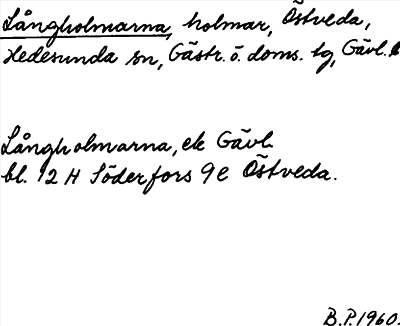 Långholmarna, holmar, Östveda,
Hedesunda sn, Gästr. ö. doms. tg, Gävl. l
Långholmarna, ek Gävl.
bl. 12 H Söderfors 9 e Östveda.
B.P. 1960.